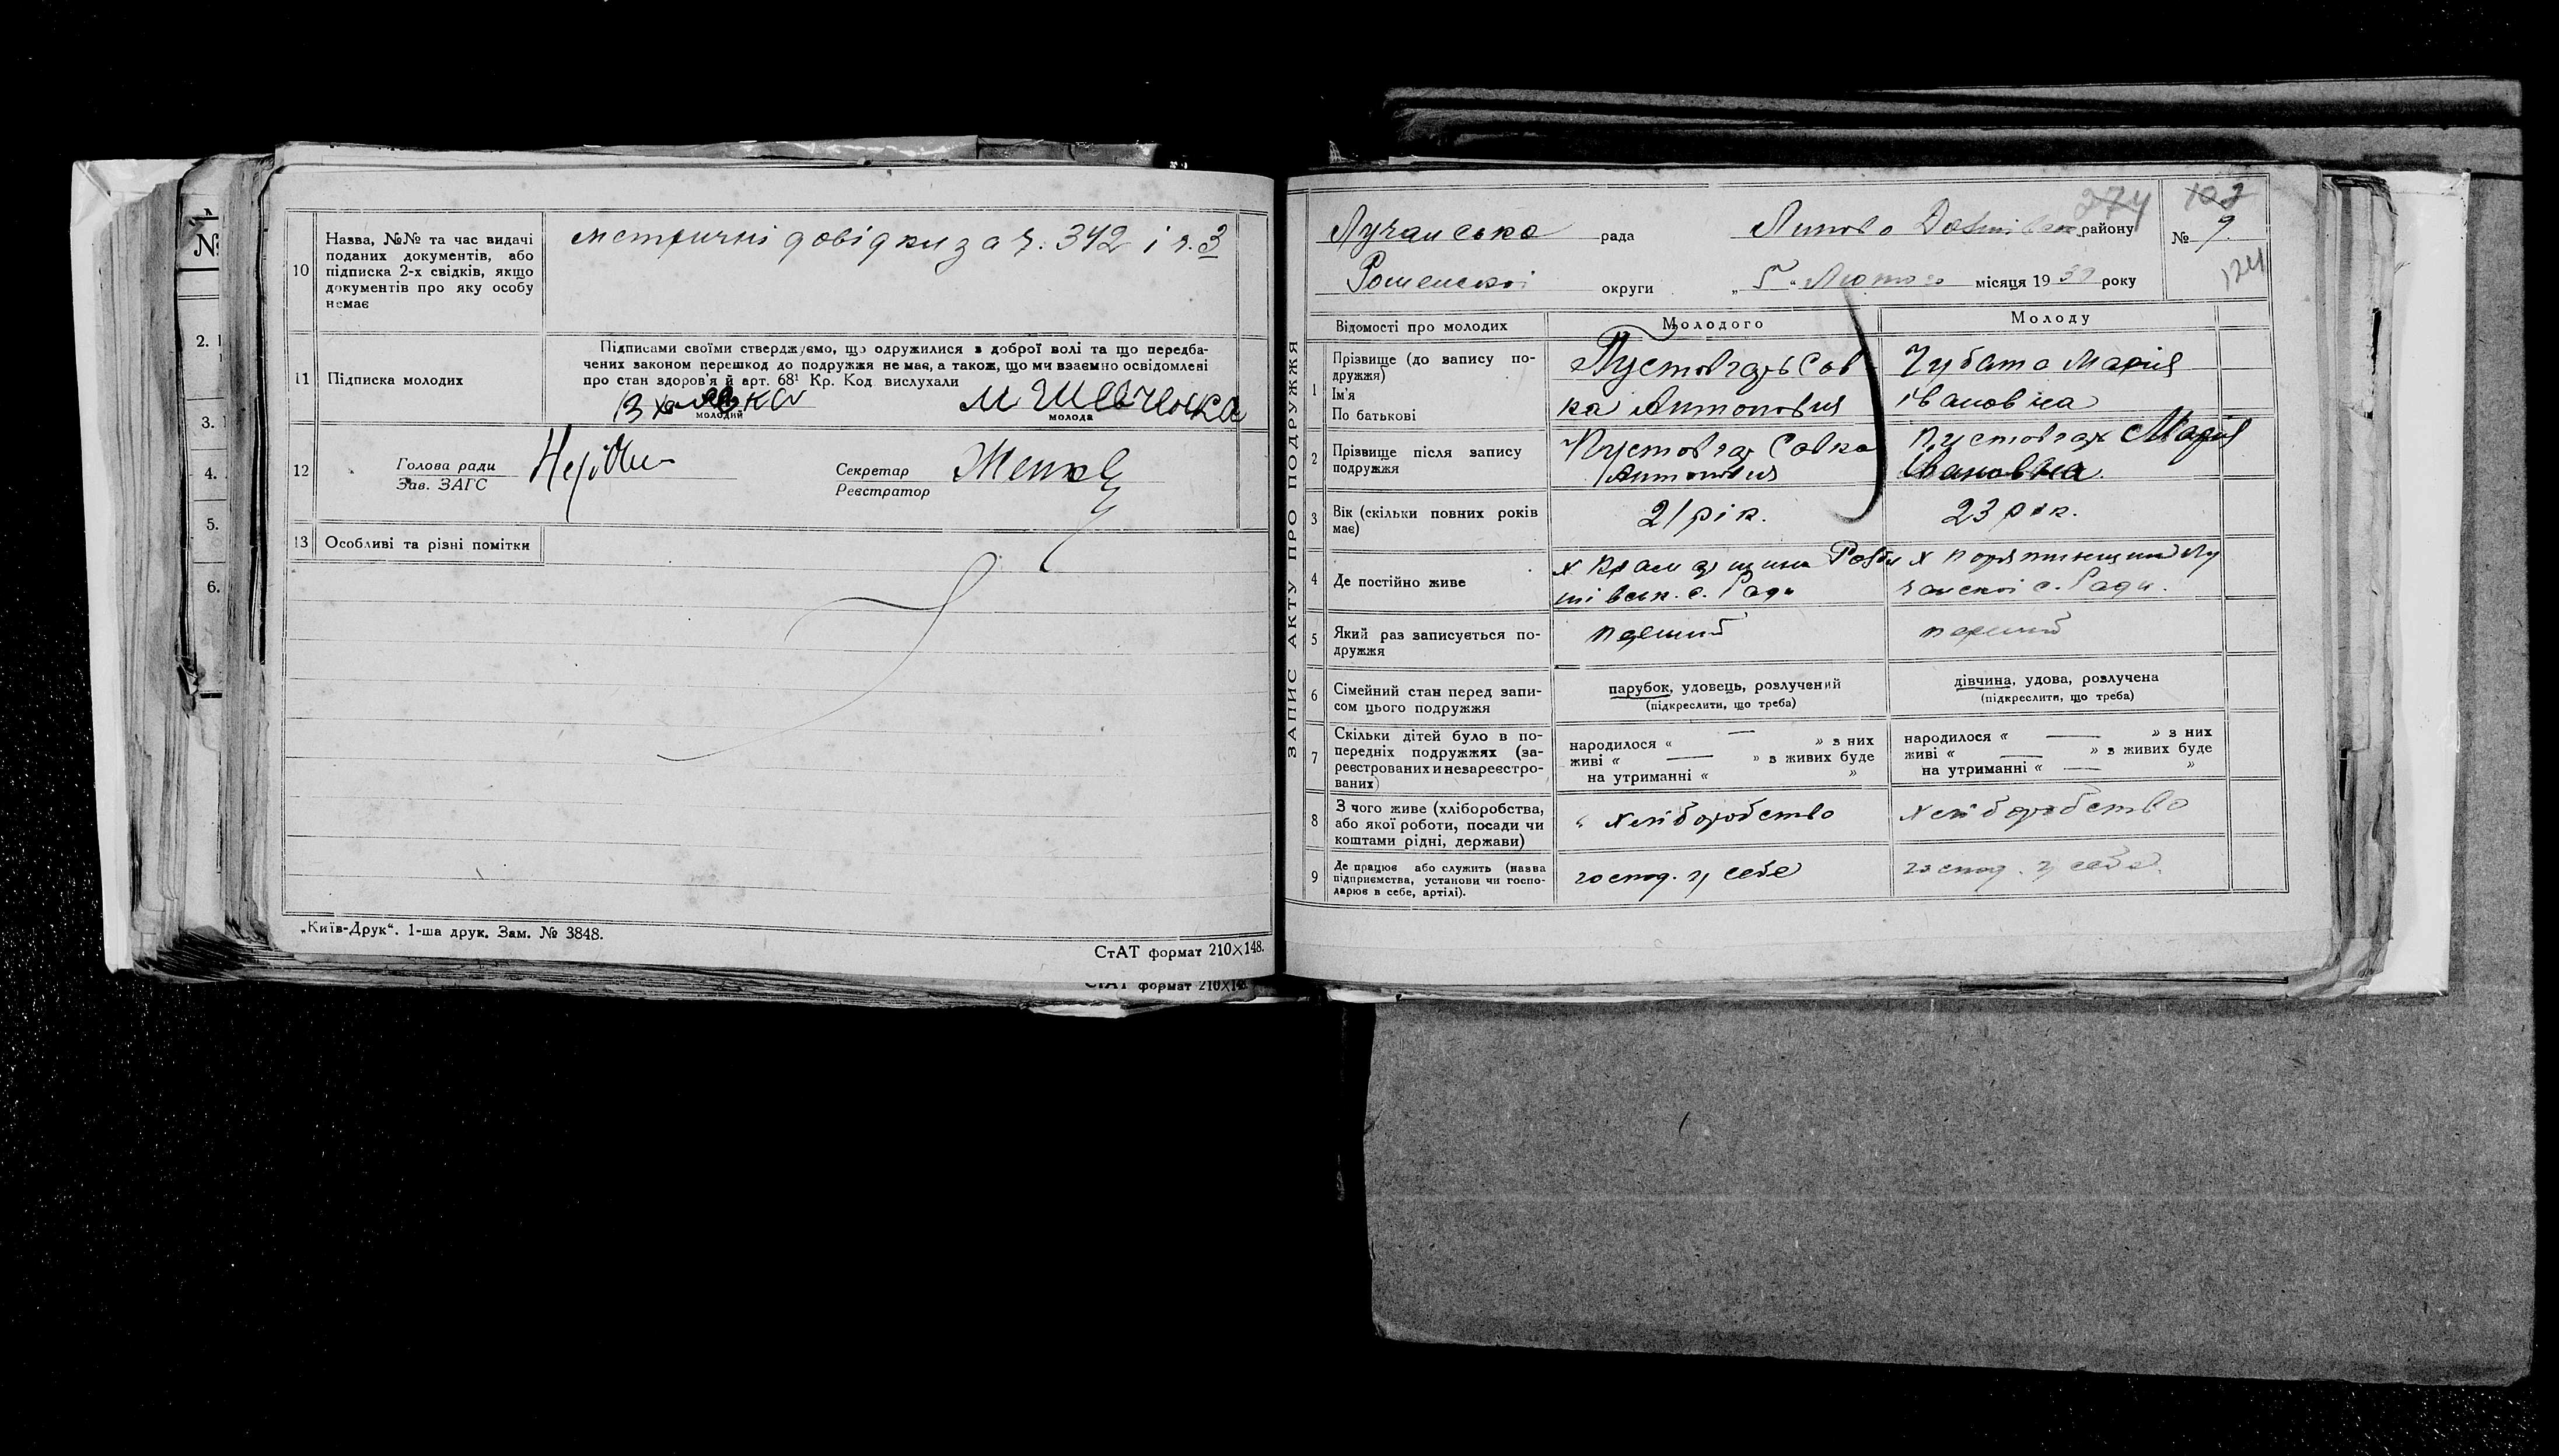 10 Назва, №№ та час видачі
поданих документів, або
підписка 2-х свідків, якщо
документів про яку особу
немає
метричні довідки за ч. 342 і ч. 3
11 Підписка молодих
Підписами своїми стверджуємо, що одружилися з доброї волі та що передба-
чених законом перешкод до подружжя немає, а також, що ми взаємно освідомлені
про стан здоров'я й арт. 68¹ Кр. Код. вислухали
молодий
М Шевченка
молода
12 Голова ради
Зав. ЗАГС
Секретар
Реєстратор
13 Особливі та різні помітки
„Київ-Друк“. 1-ша друк. Зам. № 3848.
СтАТ формат 210×148.
СтАТ формат 210×148
№
2.
3.
4.
5.
6.
ЗАПИС АКТУ ПРО ПОДРУЖЖЯ
274
103
Лучанська рада Липово Долинськ. району № 9
Роменської округи „5“ Лютого місяця 1930 року
124
Відомості про молодих Молодого Молоду
1 Прізвище (до запису по-
дружжя)
Ім'я
По батькові
Пустовгар Сав
ка Антонович
Чубата Марія
івановна
2 Прізвище після запису
подружжя
Пустовгар Савка
Антонович
Пустовгар Марія
Івановна.
3 Вік (скільки повних років
має)
21 рік.
23 рок.
4 Де постійно живе
с. Ради
х
чанскої с. Ради.
5 Який раз записується по-
дружжя
перший
перший
6 Сімейний стан перед запи-
сом цього подружжя
парубок, удовець, розлучений
(підкреслити, що треба)
дівчина, удова, розлучена
(підкреслити, що треба)
7 Скільки дітей було в по-
передніх подружжях (за-
реєстрованих и незареєстро-
ваних)
народилося « — » з них
живі « — » з живих буде
на утриманні « »
народилося « — » з них
живі « — » з живих буде
на утриманні « — »
8 З чого живе (хліборобства,
або якої роботи, посади чи
коштами рідні, держави)
хліборобство
хліборобство
9 Де працює або служить (назва
підприємства, установи чи госпо-
дарює в себе, артілі).
господ. у себе
господ. у себе.